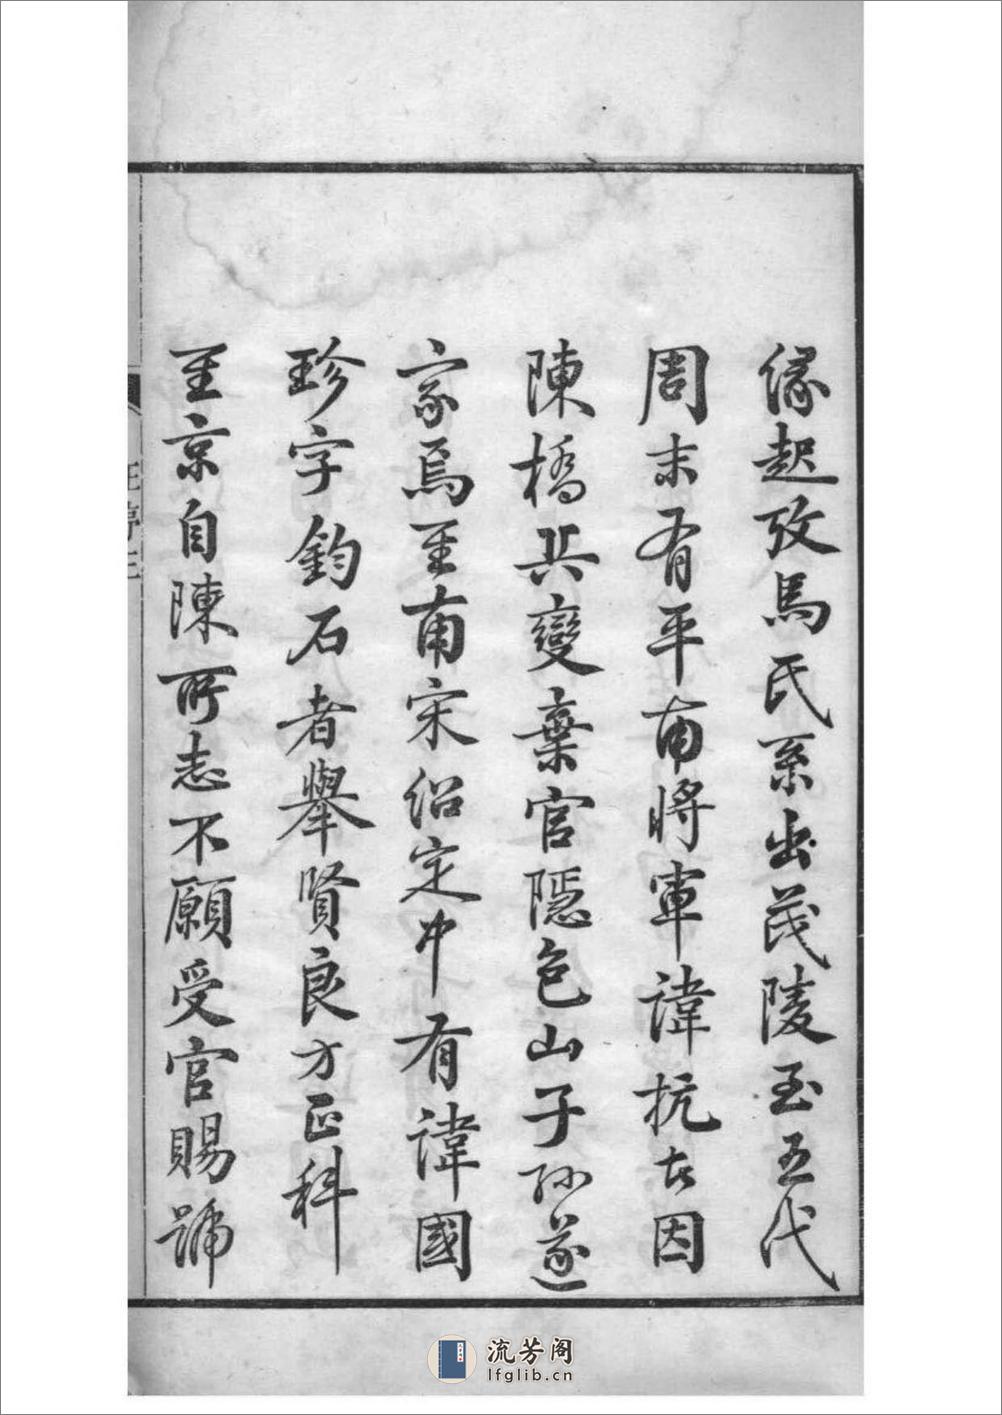 緣起攷馬氏系出茂陵至五代
周末有平南將軍諱抗者因
陳橋兵變棄官隱包山子孫遂
家焉至南宋紹定中有諱國
珍字鈞石者舉賢良方正科
至京自陳所志不願受官賜號
流芳阁
lfglib.cn